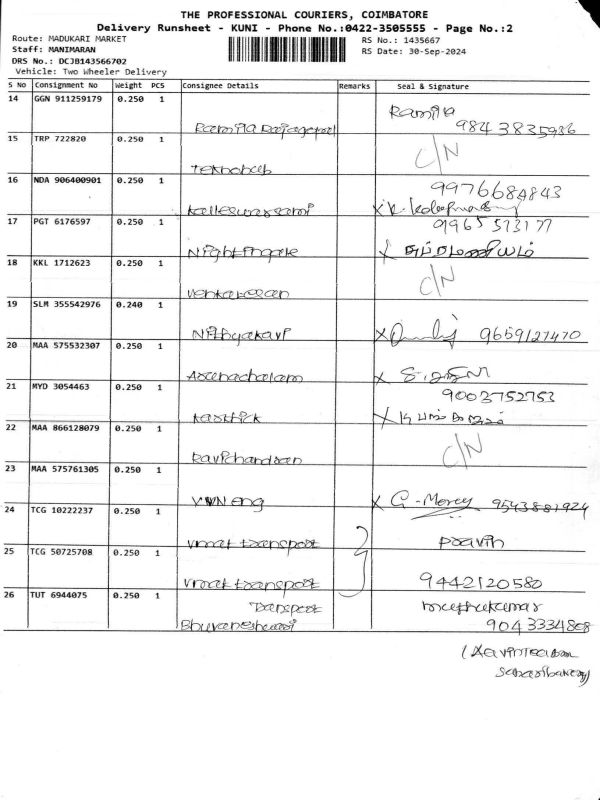 THE PROFESSIONAL COURIERS, COIMBATORE
Delivery Runsheet - KUNI - Phone No.:0422-3505555 - Page No.:2
Route: MADUKARI MARKET
RS No.: 1435667
Staff: MANIMARAN
RS Date: 30-Sep-2024
DRS No.: DCJB143566702
Vehicle: Two Wheeler Delivery
S No Consignment No Weight PCS Consignee Details Remarks Seal & Signature
14 GGN 911259179 0.250 1
Ramila
Ramila Rajagopal 9843835936
15 TRP 722820 0.250 1
C/N
Teknohub
16 NDA 906400901 0.250 1
9976684843
Kalleswarsami X
17 PGT 6176597 0.250 1
9965573177
Nightingale X சுப்ரமணியம்
18 KKL 1712623 0.250 1
C/N
Venkatesan
19 SLM 355542976 0.240 1
Nithyakavi X 9659127470
20 MAA 575532307 0.250 1
Arunachalam X
21 MYD 3054463 0.250 1
9003752753
Karthick X
22 MAA 866128079 0.250 1
C/N
Ravichandran
23 MAA 575761305 0.250 1
VVN eng X G-Mercy 9543881924
24 TCG 10222237 0.250 1
Vmat transport Pravin
25 TCG 50725708 0.250 1
Vmat transport 9442120580
26 TUT 6944075 0.250 1
Transport muthukumar
Bhuvaneshwari 9043334808